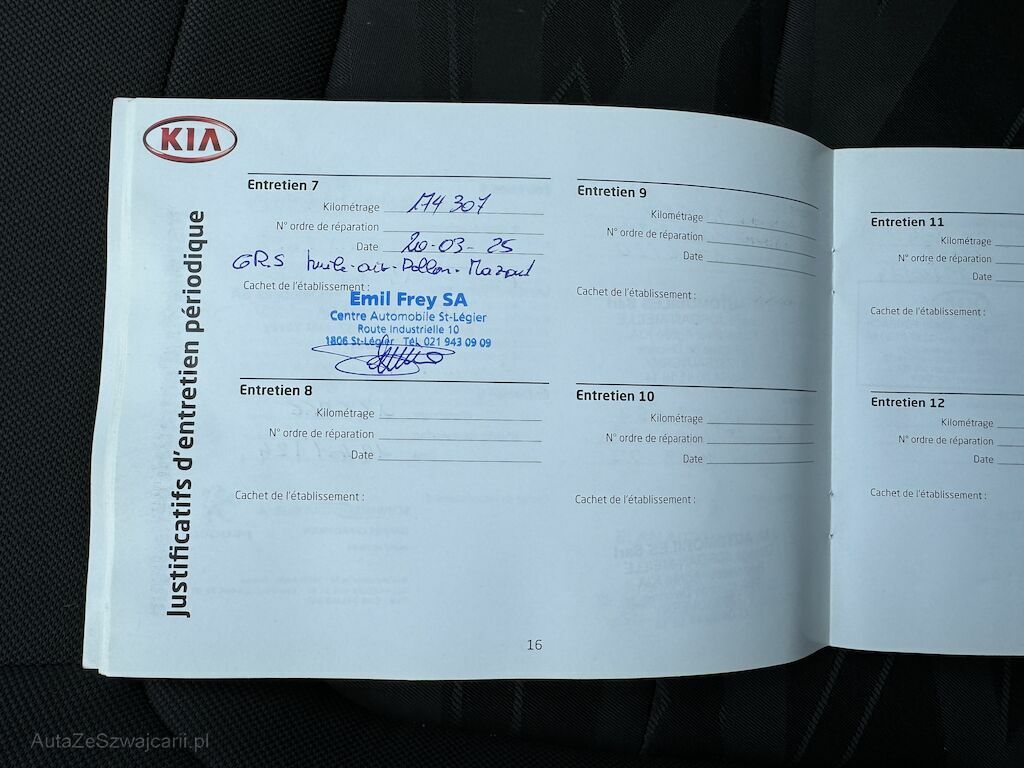 KIA
Justificatifs d'entretien périodique
Entretien 7
Kilométrage 174 307
N° ordre de réparation
Date 20-03-25
GR.S huile-air-Pollen-Mazout
Cachet de l'établissement :
Emil Frey SA
Centre Automobile St-Légier
Route Industrielle 10
1806 St-Légier Tél. 021 943 09 09
Entretien 8
Kilométrage
N° ordre de réparation
Date
Cachet de l'établissement :
Entretien 9
Kilométrage
N° ordre de réparation
Date
Cachet de l'établissement :
Entretien 10
Kilométrage
N° ordre de réparation
Date
Cachet de l'établissement :
16
Entretien 11
Kilométrage
N° ordre de réparation
Date
Cachet de l'établissement :
Entretien 12
Kilométrage
N° ordre de réparation
Date
Cachet de l'établissement :
AutaZeSzwajcarii.pl